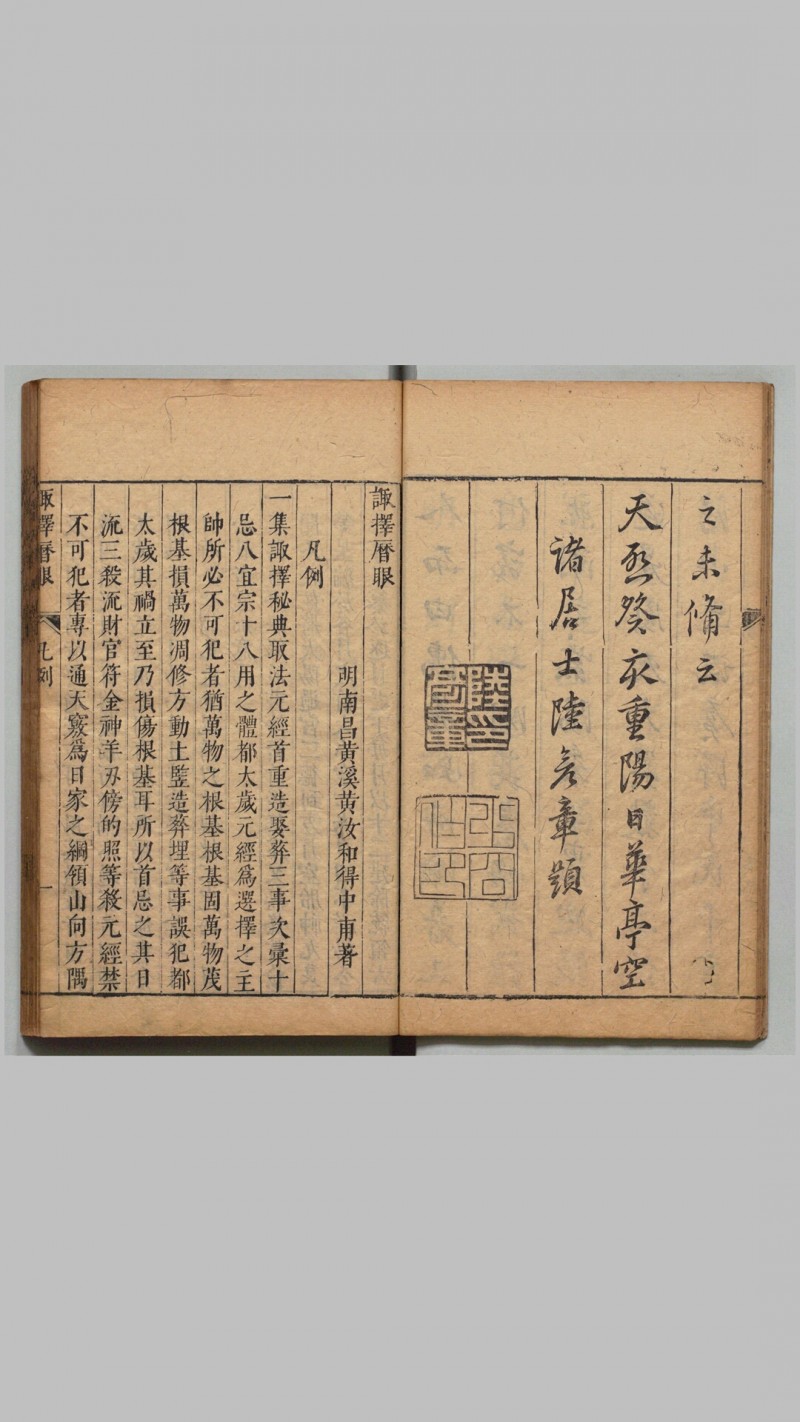 之未備云
天啟癸亥重陽日華亭空
諸居士陸彥章題
陸彥章印
諏擇曆眼
明南昌黃溪黃汝和得中甫著
凡例
一集諏擇秘典取法元經首重造娶葬三事次彙十
忌八宜宗十八用之體都太歲元經爲選擇之主
帥所必不可犯者猶萬物之根基根基固萬物茂
根基損萬物凋修方動土豎造葬埋等事誤犯都
太歲其禍立至乃損傷根基耳所以首忌之其日
流三殺流財官符金神羊刃傍的照等殺元經禁
不可犯者專以通天竅爲日家之綱領山向方隅
諏擇曆眼 凡例 一